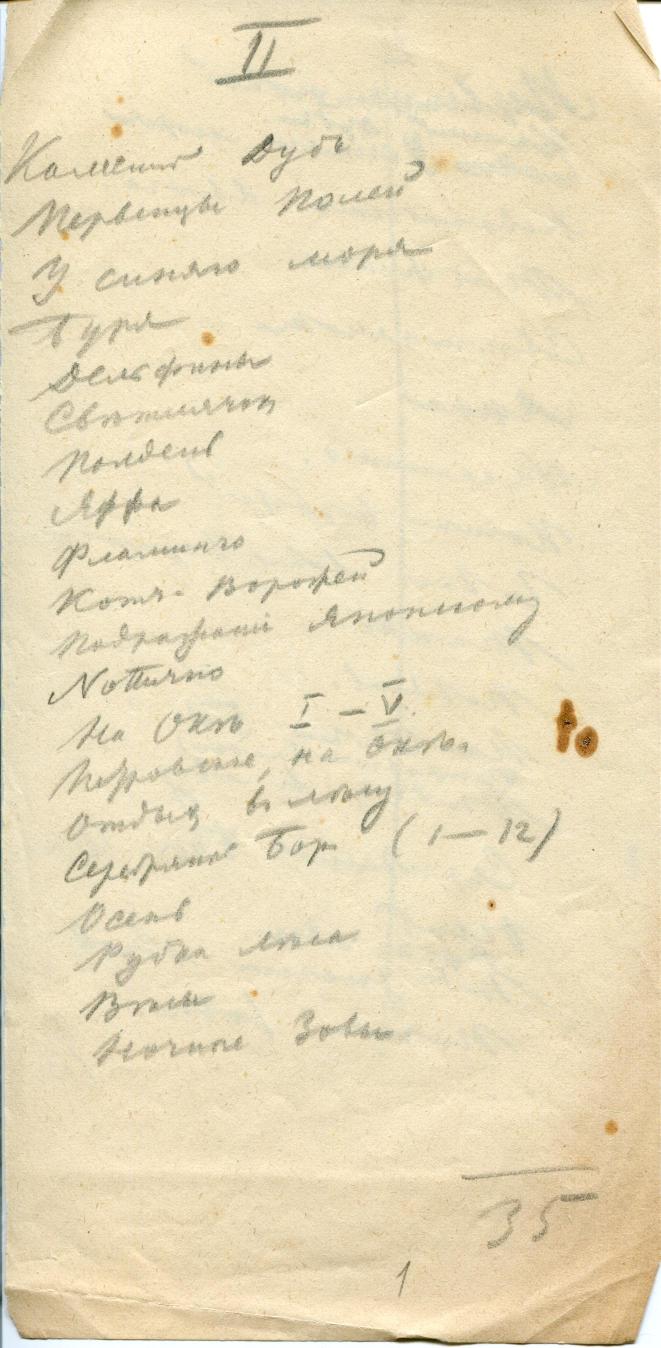 II
Каменный Дубъ
Первенцы Полей
У синяго моря
Буря
Дельфины
Свѣтлячки
Полдень
Яффа
Фламинго
Ворожей
Подражание Японскому
Notturno
На Окѣ I – V.
на Окѣ.
Отдых в лѣсу
Серебряный Бор (1 — 12)
Осень
Рубка лѣса
Ночные Зовы
35
1